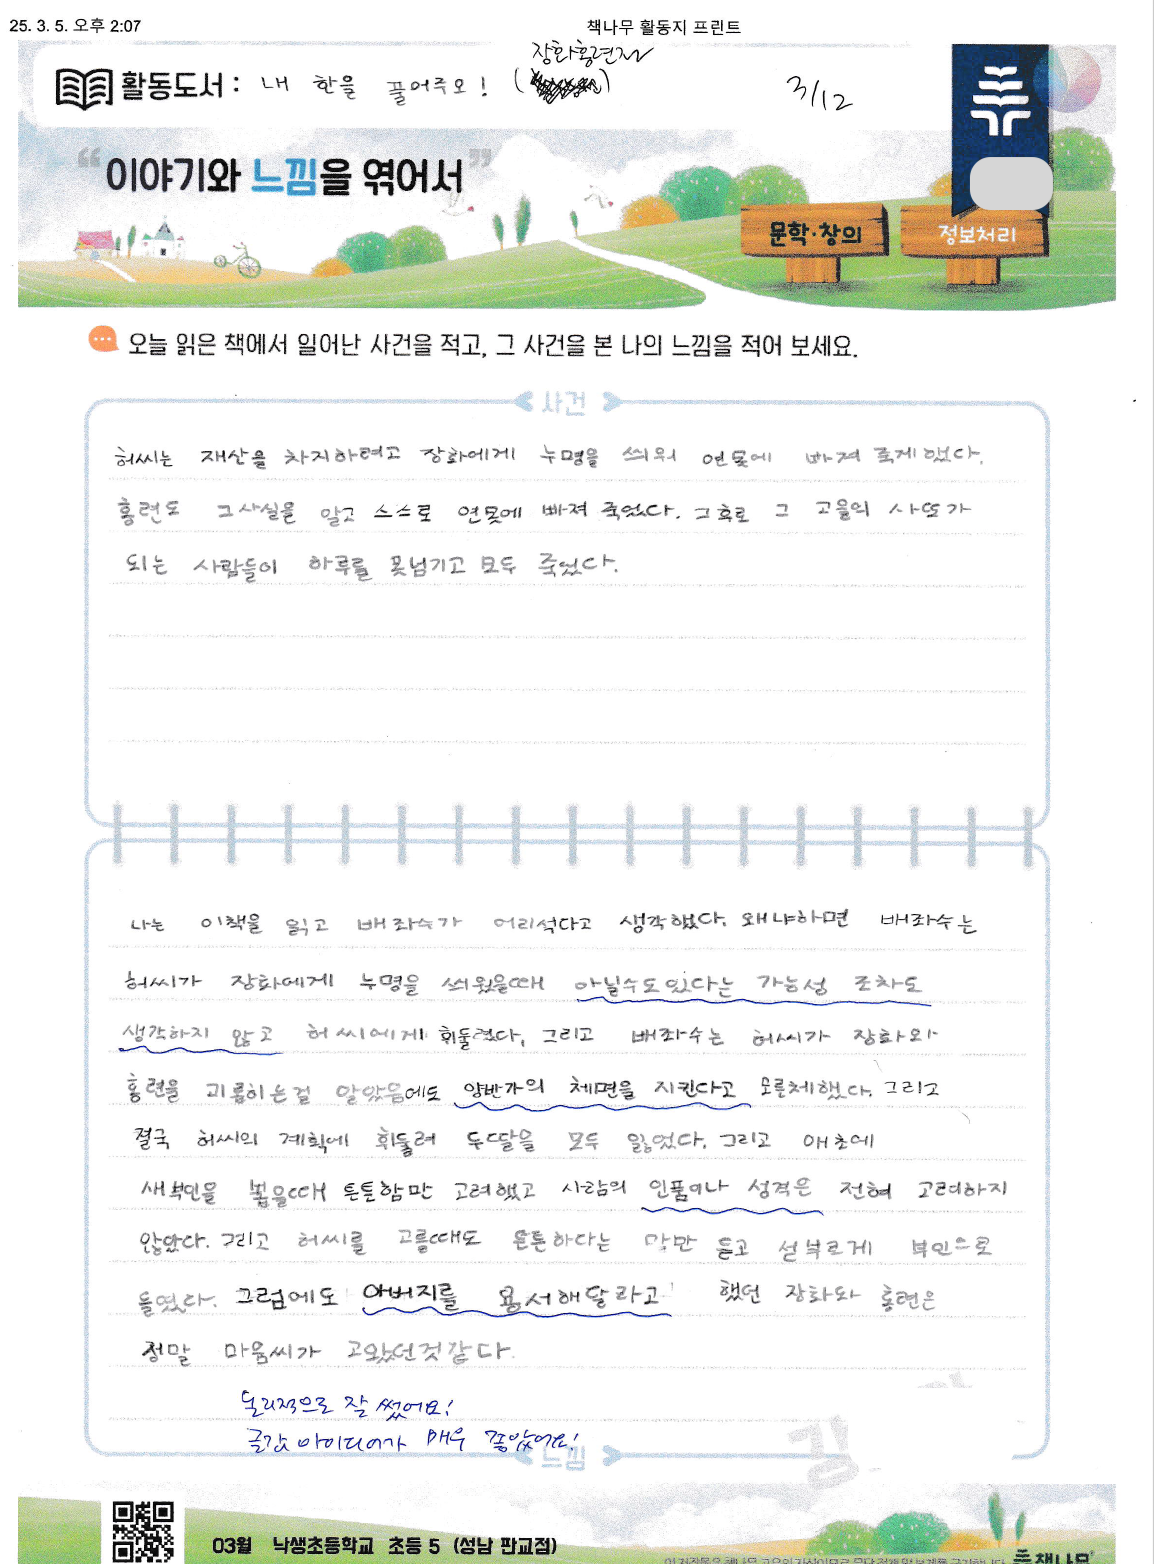 25. 3. 5. 오후 2:07
책나무 활동지 프린트
장화홍련전
활동도서 : 내 한을 풀어주오! ( )
3/12
"이야기와 느낌을 엮어서"
문학·창의
정보처리
오늘 읽은 책에서 일어난 사건을 적고, 그 사건을 본 나의 느낌을 적어 보세요.
사건
허씨는 재산을 차지하려고 장화에게 누명을 씌워 연못에 빠져 죽게했다.
홍련도 그사실을 알고 스스로 연못에 빠져 죽었다. 그후로 그 고을의 사또가
되는 사람들이 하루를 못넘기고 모두 죽었다.
나는 이책을 읽고 배좌수가 어리석다고 생각했다. 왜냐하면 배좌수는
허씨가 장화에게 누명을 씌웠을때 아닐수도있다는 가능성 조차도
생각하지 않고 허씨에게 휘둘렸다. 그리고 배좌수는 허씨가 장화와
홍련을 괴롭히는걸 알았음에도 양반가의 체면을 지킨다고 모른체했다. 그리고
결국 허씨의 계획에 휘둘려 두딸을 모두 잃었다. 그리고 애초에
새부인을 뽑을때 튼튼함만 고려했고 사람의 인품이나 성격은 전혀 고려하지
않았다. 그리고 허씨를 고를때도 튼튼하다는 말만 듣고 섣부르게 부인으로
들였다. 그럼에도 아버지를 용서해달라고 했던 장화와 홍련은
정말 마음씨가 고왔던것같다.
논리적으로 잘 썼어요!
글감 아이디어가 매우 좋았어요!
느낌
김
03월 낙생초등학교 초등 5 (성남 판교점)
책나무